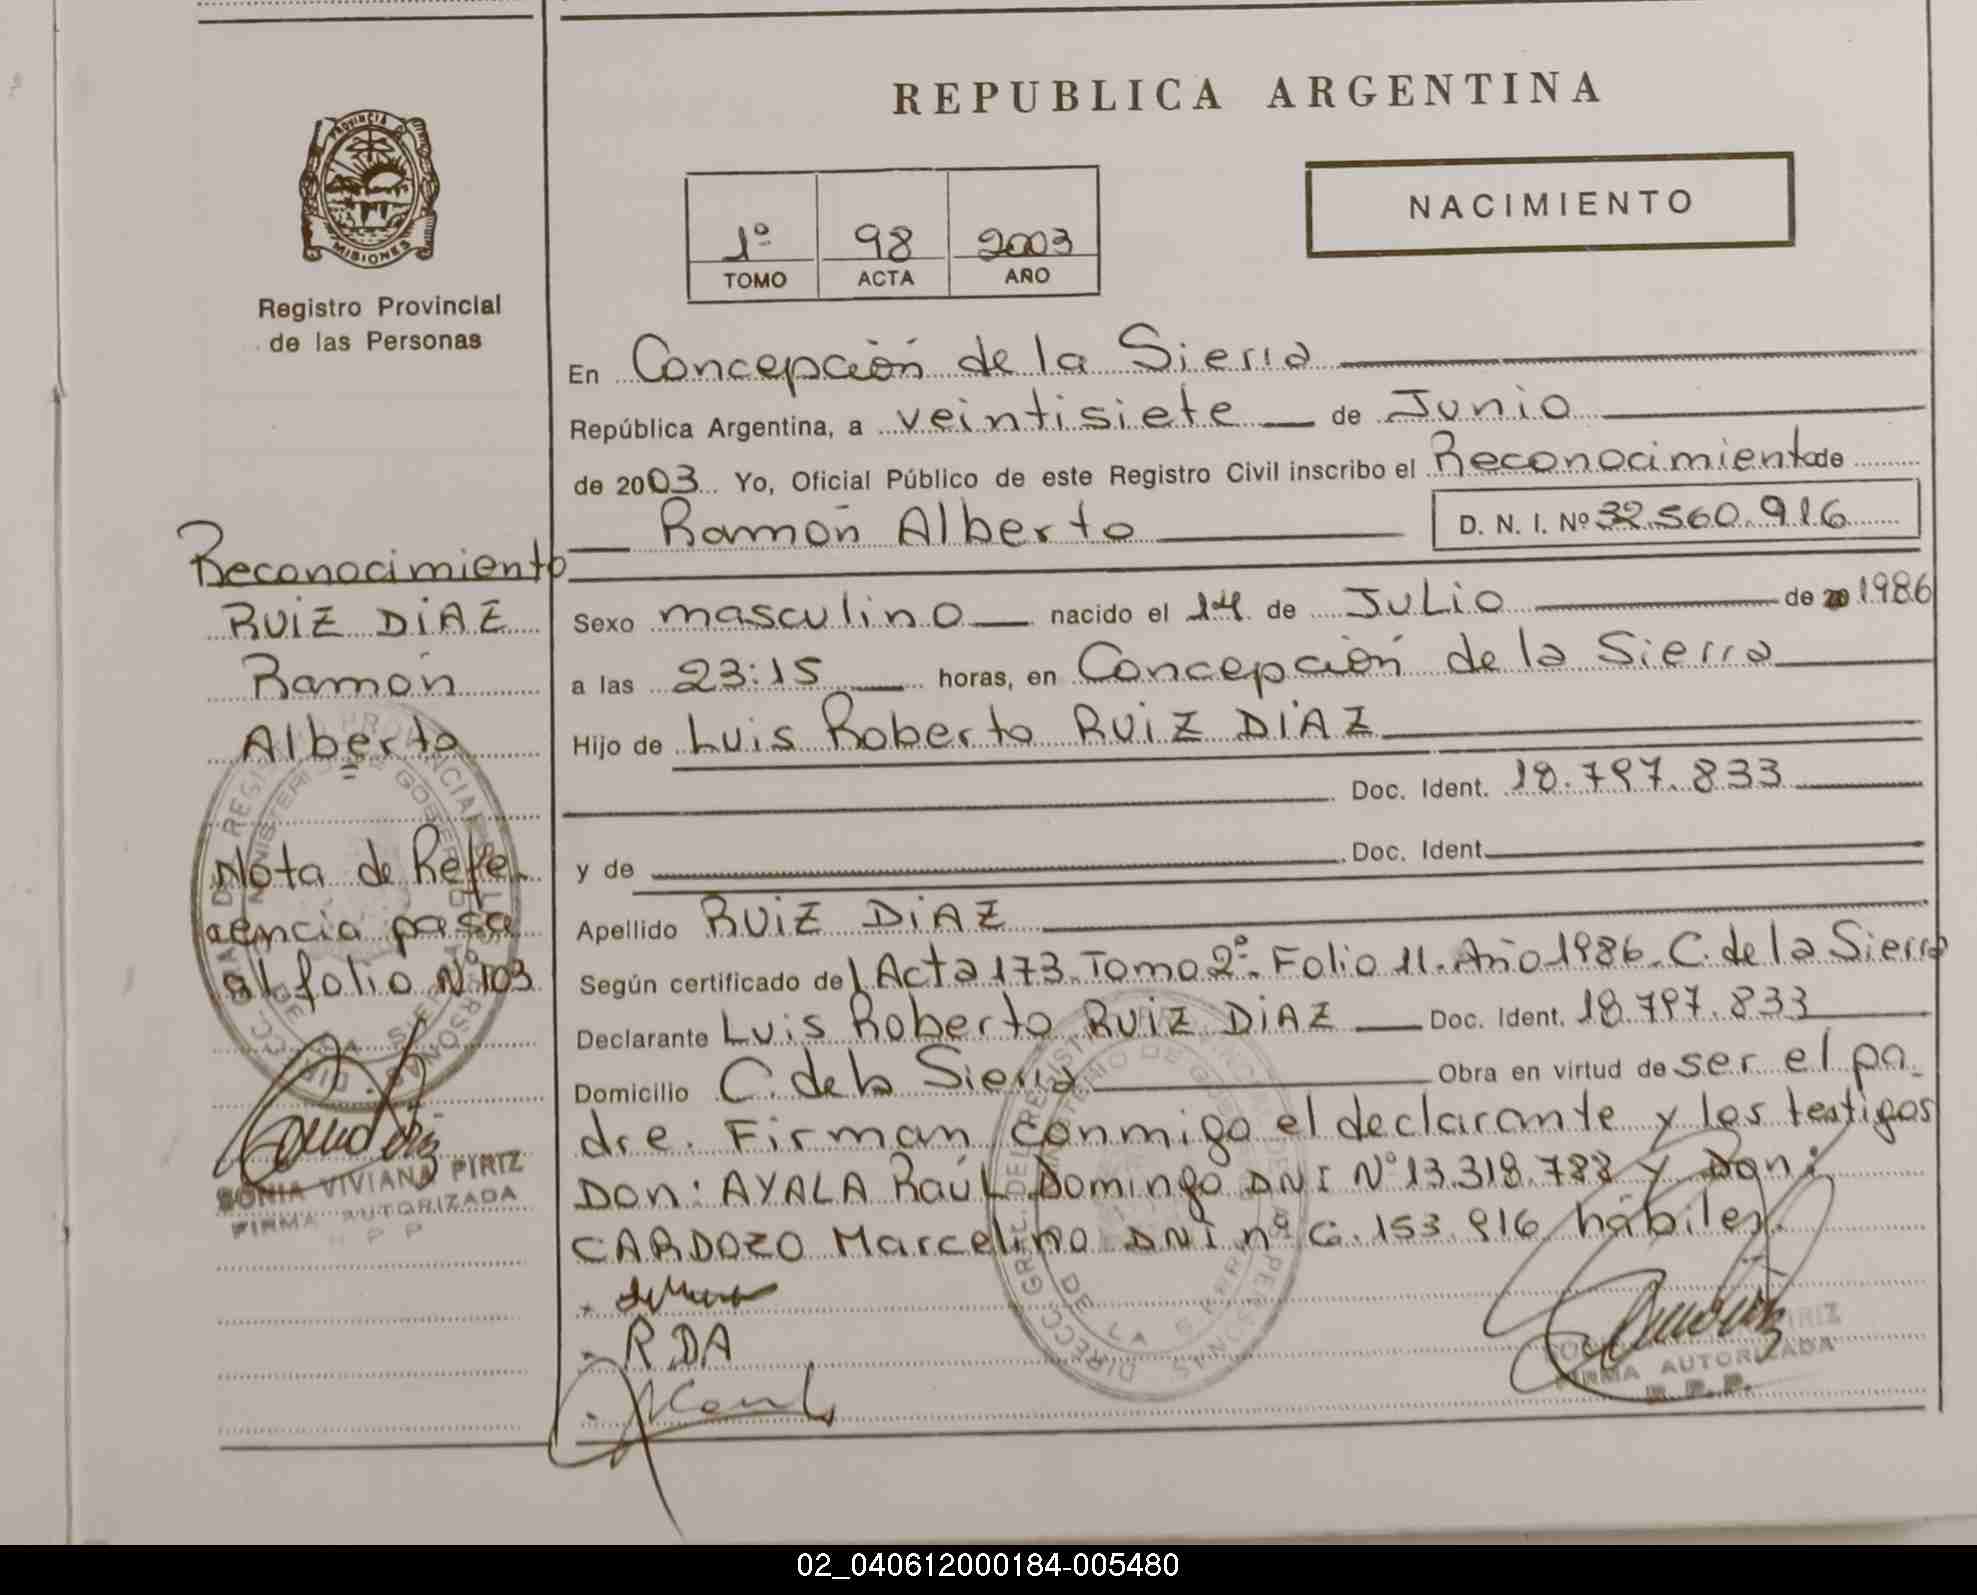 REPUBLICA ARGENTINA
PROVINCIA DE MISIONES
Registro Provincial
de las Personas
1º 98 2003
TOMO ACTA AÑO
NACIMIENTO
En Concepción de la Sierra
República Argentina, a veintisiete de Junio
de 2003 Yo, Oficial Público de este Registro Civil inscribo el Reconocimiento de
Ramón Alberto D. N. I. Nº 32.560.916
Sexo masculino nacido el 14 de JULio de 1986
a las 23:15 horas, en Concepción de la Sierra
Hijo de Luis Roberto RUIZ DIAZ
Doc. Ident. 18.797.833
y de Doc. Ident.
Apellido RUIZ DIAZ
Según certificado de Acta 173. Tomo 2º. Folio 11. Año 1986. C. de la Sierra
Declarante Luis Roberto RUIZ DIAZ Doc. Ident. 18.797.833
Domicilio C. de la Sierra Obra en virtud de ser el pa-
dre. Firman conmigo el declarante y los testigos
Don: AYALA Raúl Domingo DNI Nº 13.318.788 y Don:
CARDOZO Marcelino DNI nº 6.153.916 hábiles.
RDA
Reconocimiento
RUIZ DIAZ
Ramón
Alberto
Nota de Refe-
rencia pasa
al folio Nº 103
SONIA VIVIANA PIRIZ
FIRMA AUTORIZADA
R P P
PIRIZ
FIRMA AUTORIZADA
R. P. P.
02_040612000184-005480